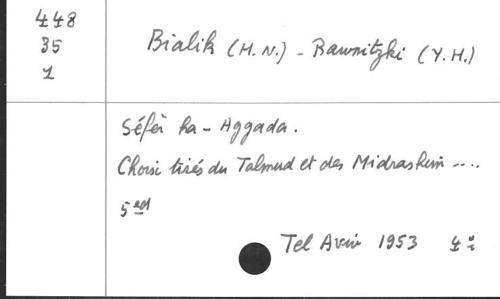 448
35
1
Bialik (H.N.) - Rawnitzki (Y.H.)
Séfèr ha-Aggada.
Choisi tirés du Talmud et des Midrashim ....
5 ed
Tel Aviv 1953 4°